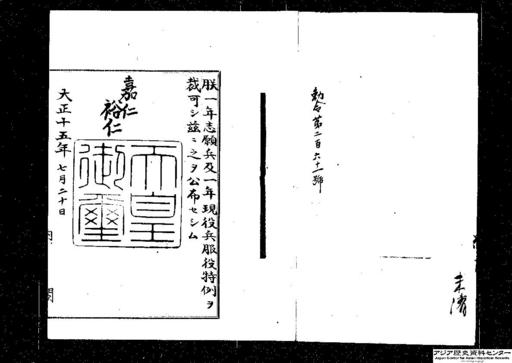 勅令第二百六十一號
朕一年志願兵及一年現役兵服役特例ヲ
裁可シ玆ニ之ヲ公布セシム
嘉仁
裕仁
天皇
御璽
大正十五年七月二十日
アジア歴史資料センター
Japan Center for Asian Historical Records